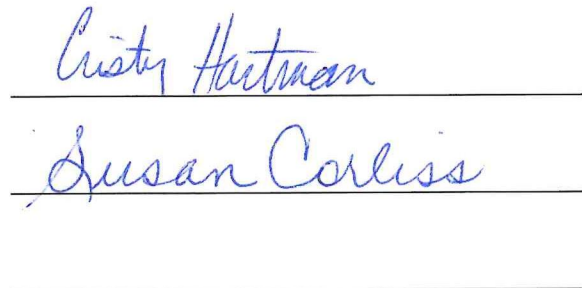 Cristy Hartman
Susan Corliss